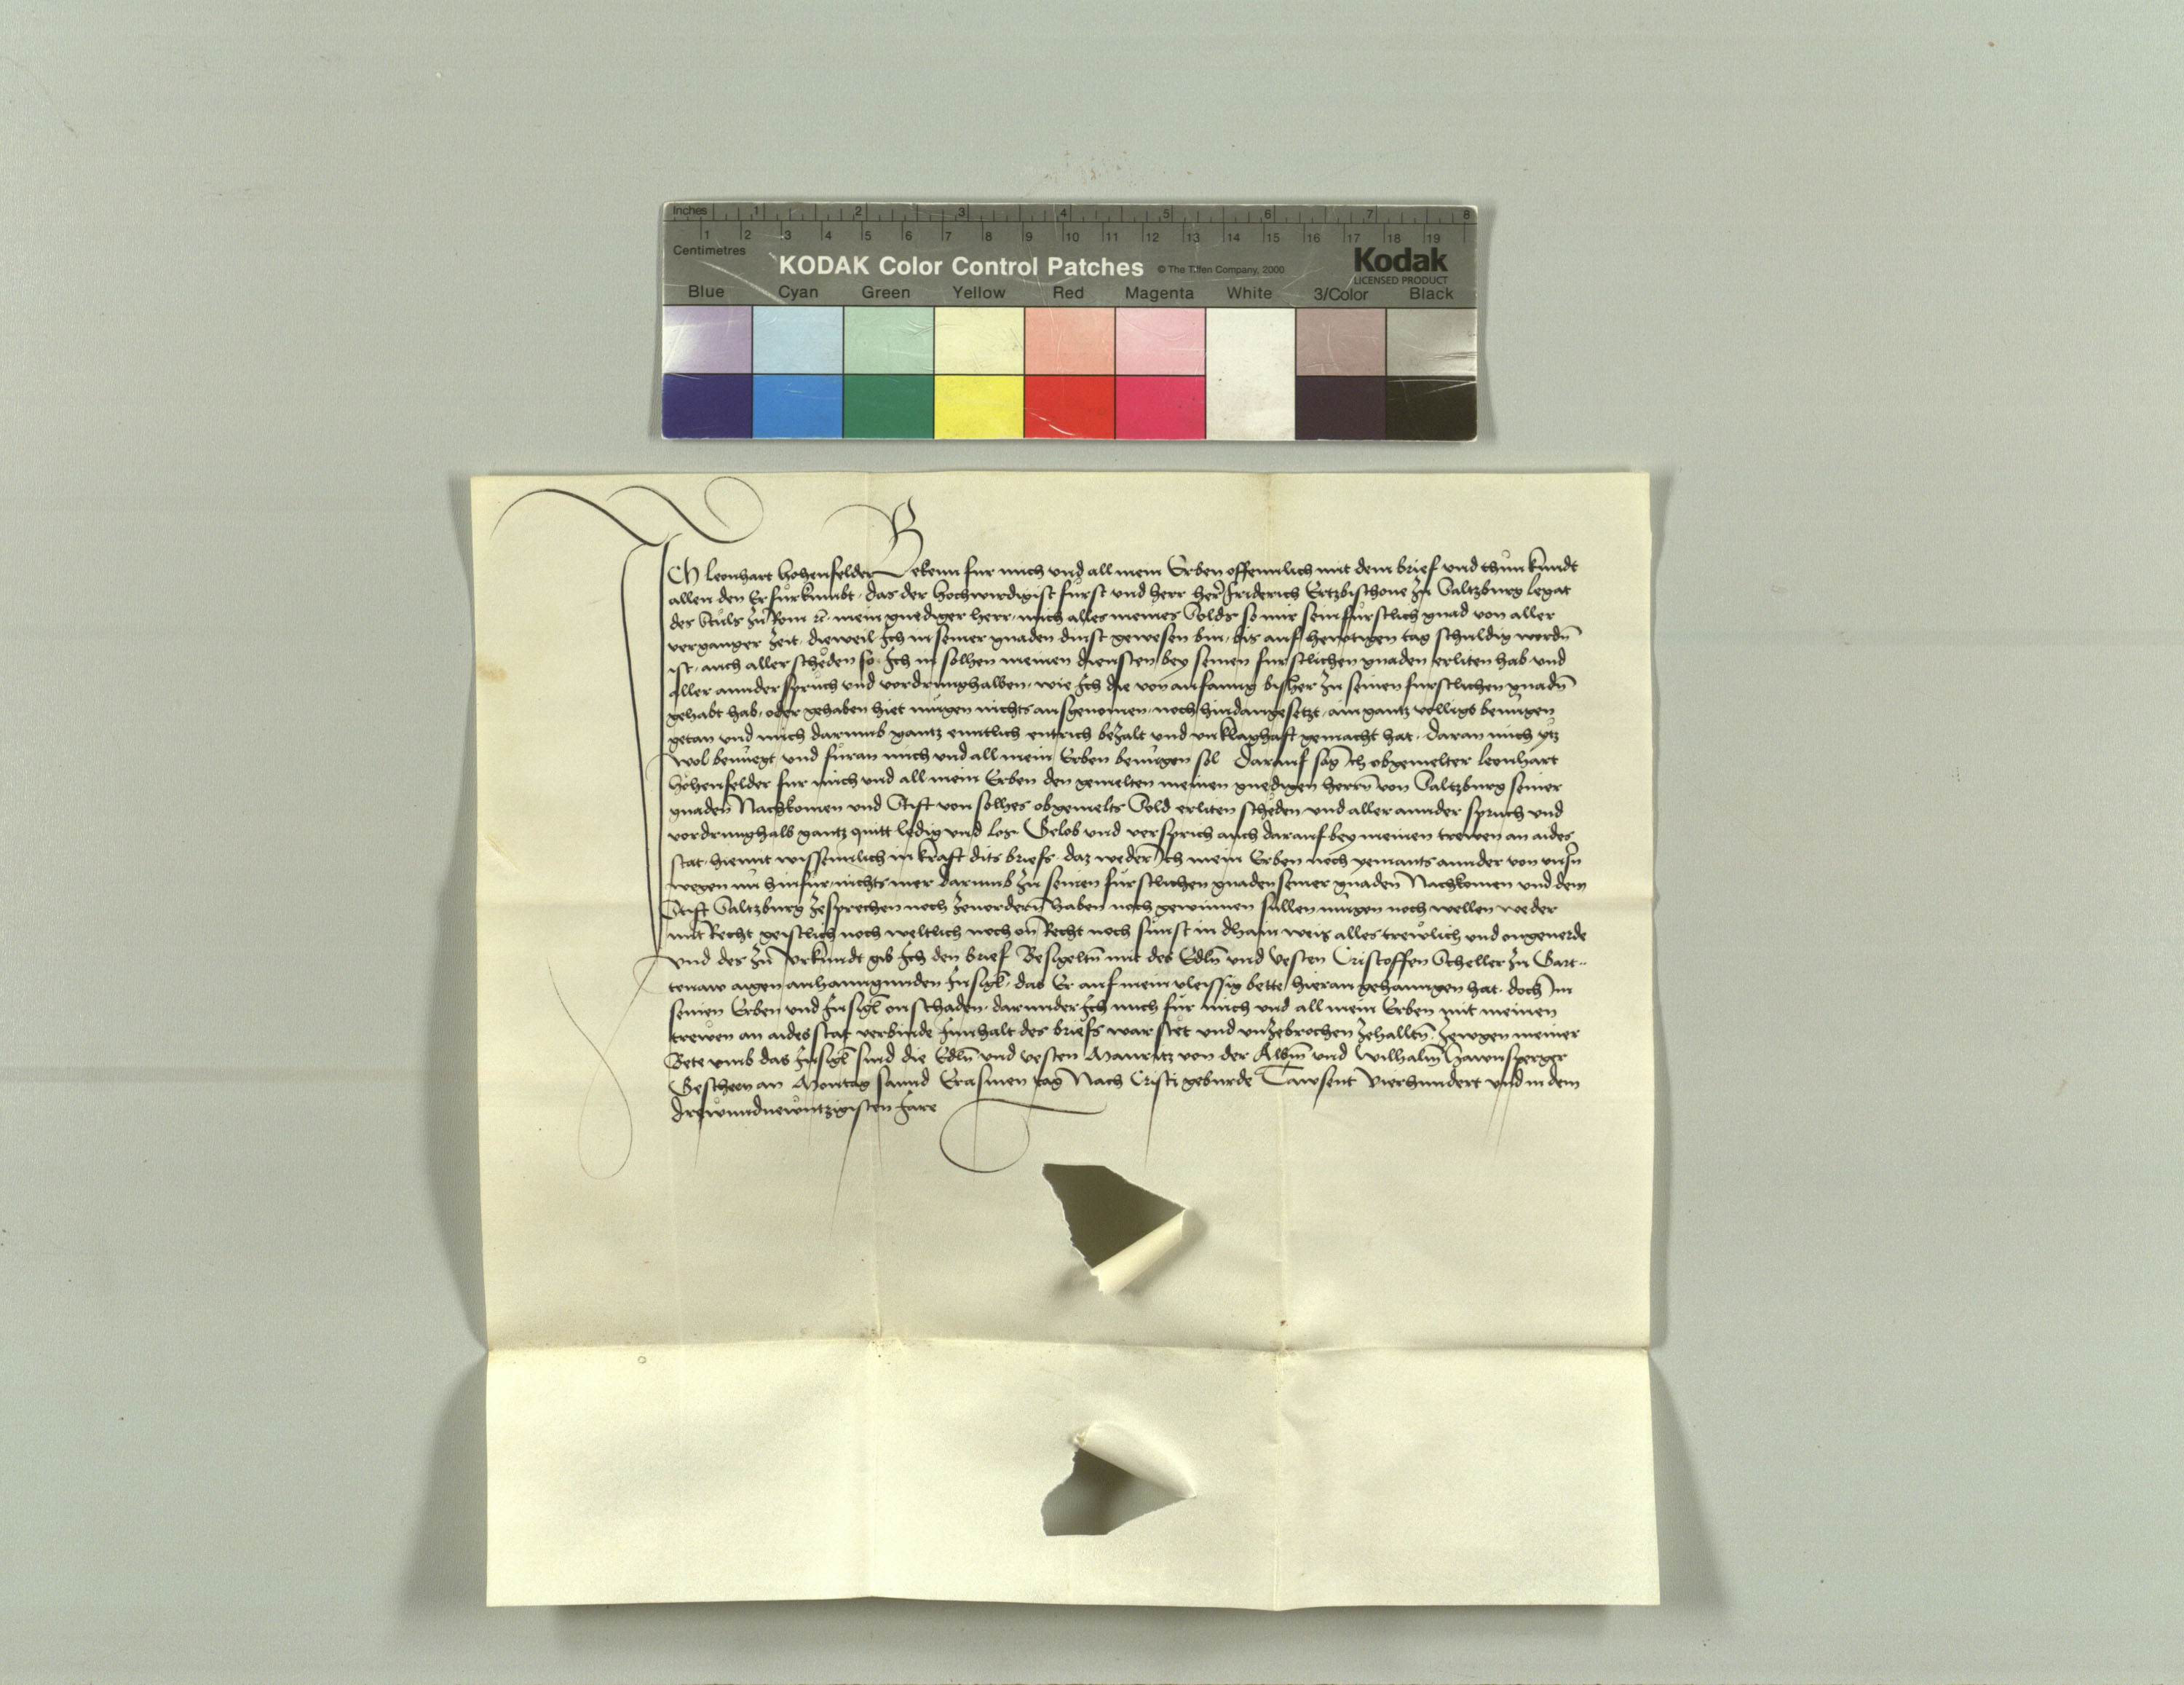 Inches 1 2 3 4 5 6 7 8
1 2 3 4 5 6 7 8 9 10 11 12 13 14 15 16 17 18 19
Centimetres
KODAK Color Control Patches © The Tiffen Company, 2000 Kodak
LICENSED PRODUCT
Blue Cyan Green Yellow Red Magenta White 3/Color Black
ICh leonhart hohenfelder Bekenn fur mich vnd all mein Erben offennlich mit dem brief vnd thun kundt
allen den Er furkumbt, das der hochwirdigist furst vnd herr her Friderich Ertzbischoue zu Saltzburg legat
des Stuls zu Rom ꝛc. mein gnediger herr, mich alles meines Solds so mir sein furstlich gnad von aller
verganger zeit, dieweil Ich in seiner gnaden dinst gewesen bin, bis auf hewtigen tag schuldig wordn̄
ist, auch aller scheden so Ich in solhen meinen diensten bey seinen furstlichen gnaden erliten hab vnd
aller annder spruch vnd vordrunghalben, wie Ich die von anfanng bisher zu seinen furstlichen gnadn̄
gehabt hab, oder gehaben hiet mugen nichts ausgenomen, noch hindangesetzt, ain gantz volligs benugen
getan vnd mich darumb gantz enntlich entrich bezalt vnd vnklaghaft gemacht hat, daran mich ytz
wol benuegt, vnd furan mich vnd all mein Erben benugen sol Darauf sag Ich obgemelter leonhart
hohenfelder fur mich vnd all mein Erben den gemelten meinen gnedigen herrn̄ von Saltzburg seiner
gnaden Nachkomen vnd Stift von solhes obgemelts Sold erliten scheden vnd aller annder spruch vnd
vordrunghalb gantz quitt ledig vnd los. Gelob vnd versprich auch darauf bey meinen trewen an aides
stat, hiemit wissenntlich in kraft dits briefs, daz weder Ich mein Erben noch yemants annder von vnsn̄
wegen nu hinfur, nichts mer darumb zu seinen furstlichen gnaden seiner gnaden Nachkomen vnd dem
Stift Saltzburg zesprechen noch zeuordern̄ haben noch gewinnen sullen mugen noch wellen weder
mit Recht geistlich noch weltlich noch on Recht noch sunst in dhain weis alles trewlich vnd ongeuerde
vnd des zu vrkundt gib Ich den brief Besigeltn̄ mit des Edln̄ vnd vesten Cristoffen Scheller zu Gart-
tenaw aigen anhanngunden Insigl, das Er auf mein vleissig bette hieran gehanngen hat, doch Im
seinen Erben vnd Insigl on schaden, darunder Ich mich fur mich vnd all mein Erben mit meinen
trewen an aides stat verbinde Innhalt des briefs war stet vnd vnzebrochen zehalltn̄. Zewgen meiner
Bete vmb das Insigl sind die Edln̄ vnd vesten Mauritz von der Albm̄ vnd wilhalm̄ hawnsperger
Geschehen an Montag sannd Erasmen tag Nach Cristi geburde Tawsent vierhundert vnd in dem
drewundnewntzigisten Jare